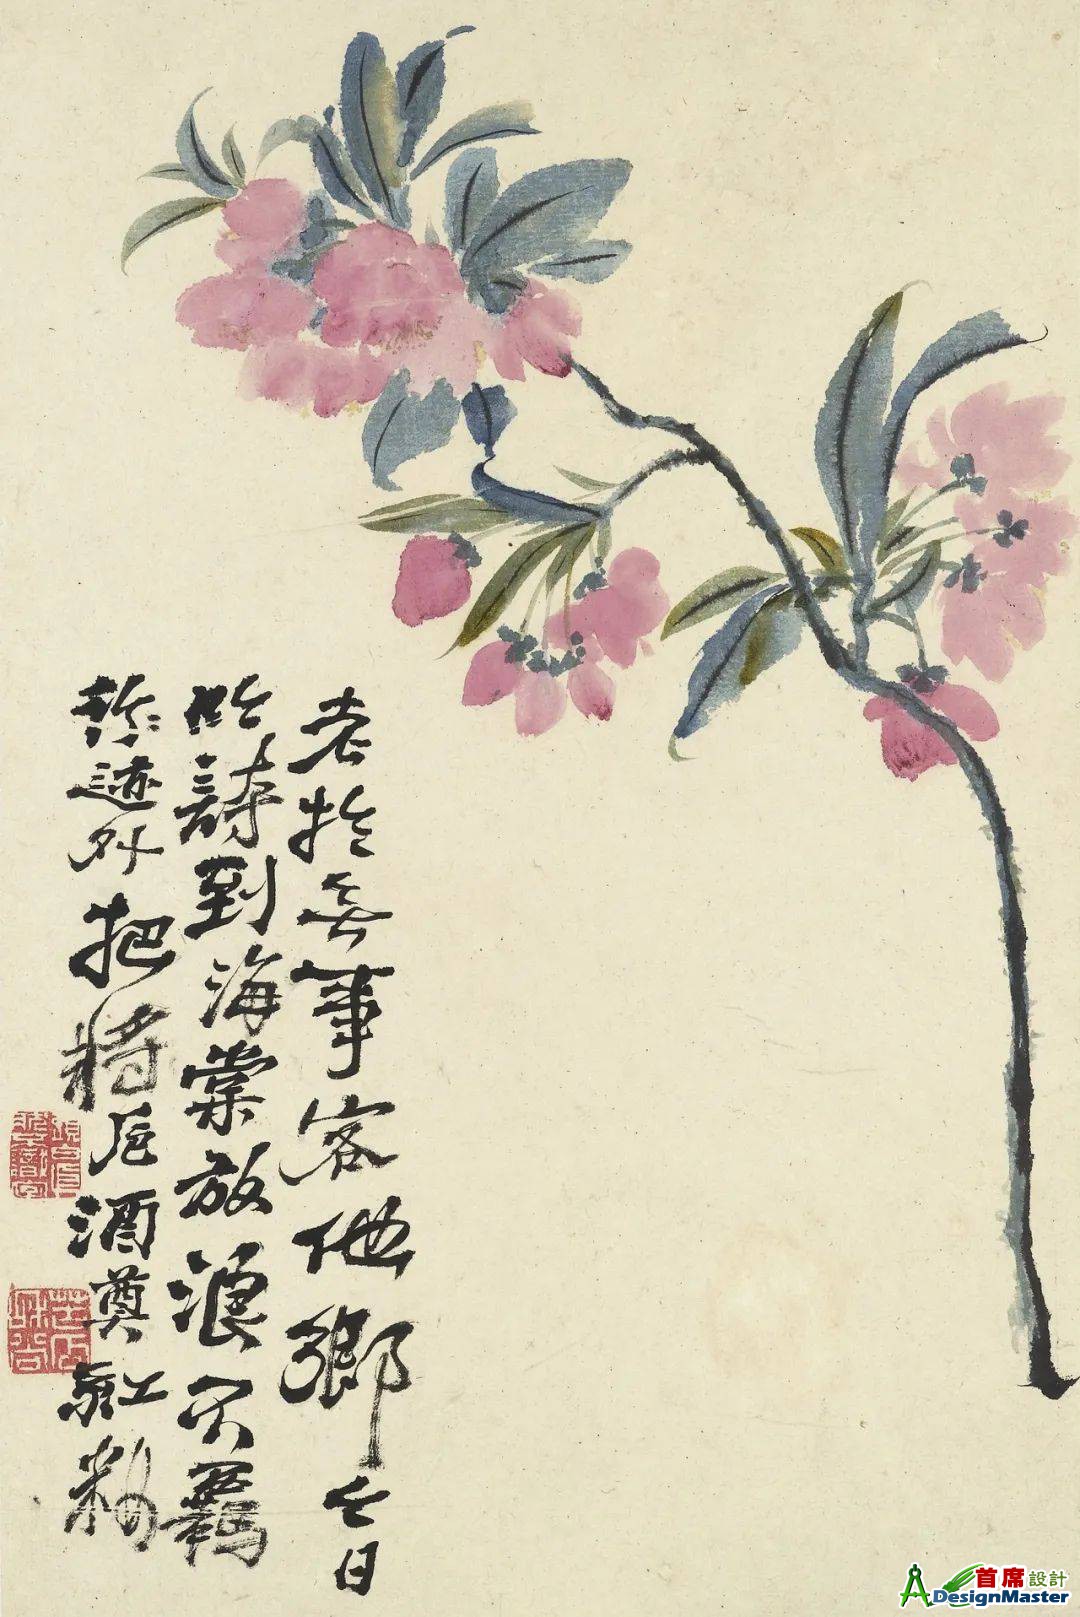 老於無事客他鄉今日
吟詩到海棠放浪不羈
形迹外把將卮酒奠紅粧
首席設計
DesignMaster